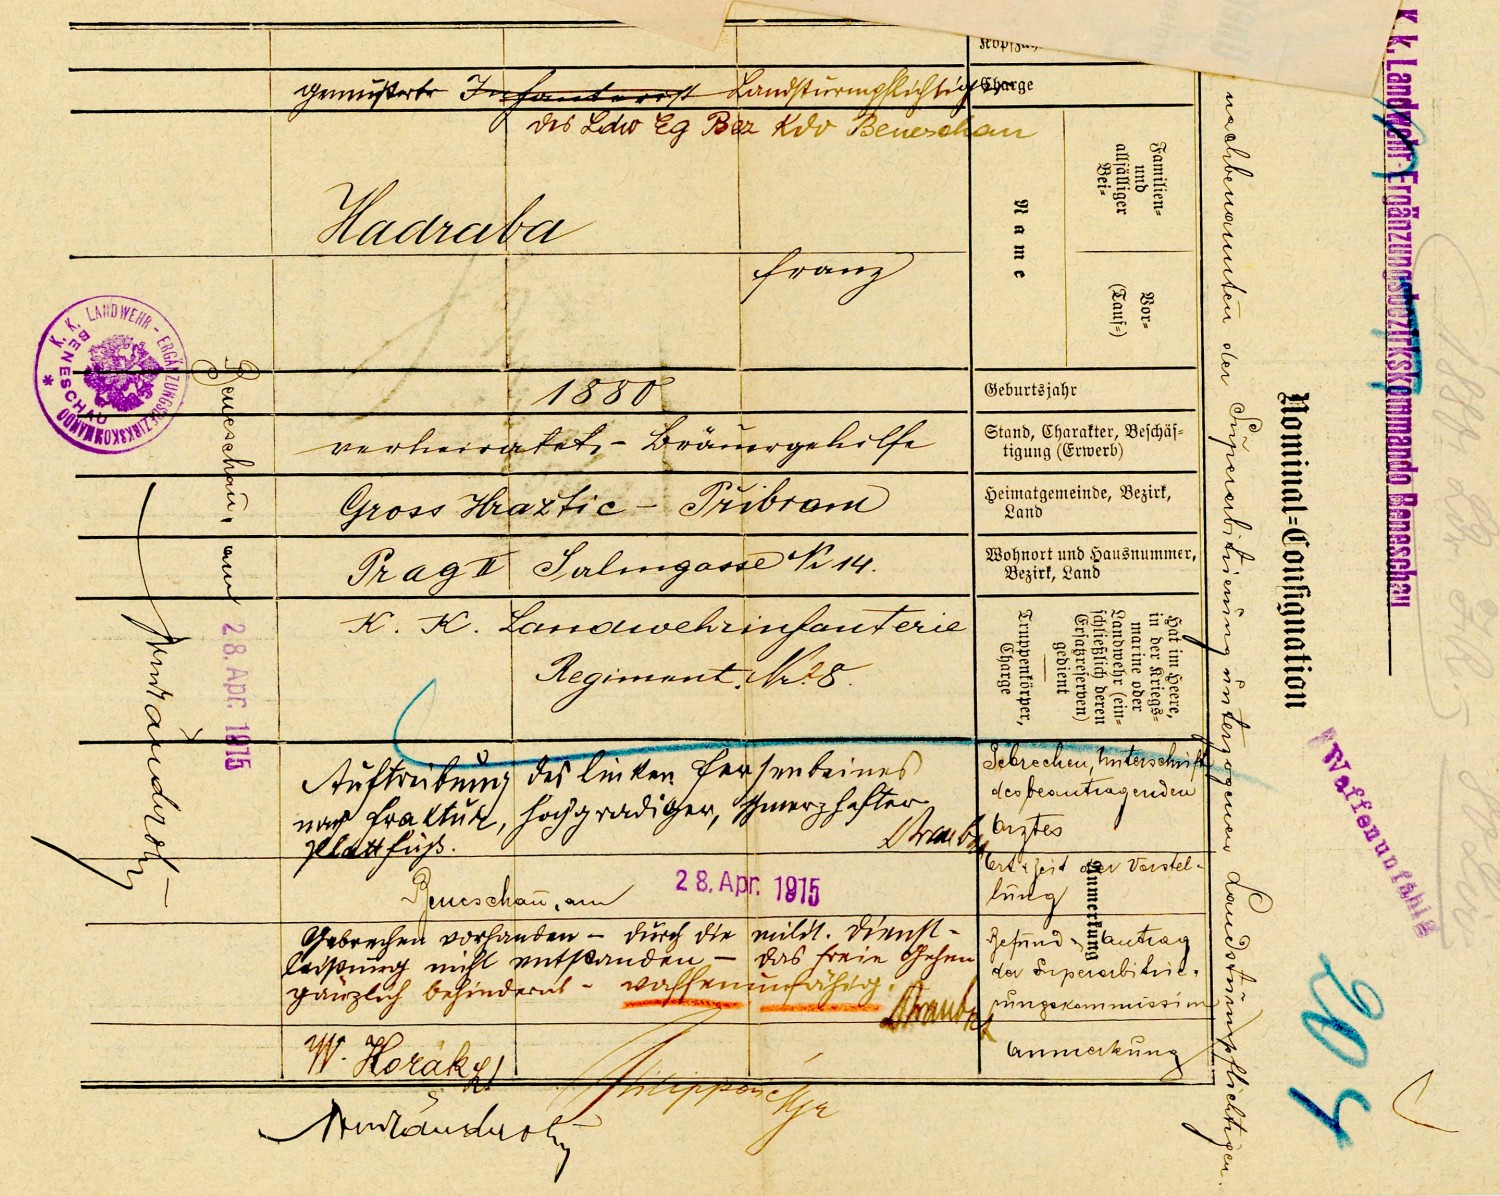 K. k. Landwehr-Ergänzungsbezirkskommando Beneschau
Nominal-Consignation
nachbenannten der Superarbitrierung unterzogenen Landsturmpflichtigen.
Waffenunfähig
204
Charge
gemusterte Infanterist Landsturmpflichtig
des Ldw Eg Bez Kdo Beneschau
Name
Familien- und allfälliger Bei-
Hadraba
Vor- (Tauf-)
Franz
Geburtsjahr
1880
Stand, Charakter, Beschäf-
tigung (Erwerb)
verheiratet, - Bräuergehilfe
Heimatgemeinde, Bezirk,
Land
Gross Hraztic - Přibram
Wohnort und Hausnummer,
Bezirk, Land
Prag II Salmgasse Nr 14.
Hat im Heere,
in der Kriegs-
marine oder
Landwehr (ein-
schließlich deren
Ersatzreserven)
gedient
Truppenkörper,
Charge
K. K. Landwehrinfanterie
Regiment. Nr. 28.
Anmerkung
Gebrechen, Unterschrift
des beantragenden
Arztes
Auftreibung des linken Fersenbeines
nach Fraktur, hochgradiger, schmerzhafter
Plattfuß.
Ort & Zeit der Vorstel-
lung
Beneschau, am 28. Apr. 1915
Befund & Antrag
der Superarbitrie-
rungskommission
Gebrechen vorhanden - durch die milit. Dienst-
leistung nicht entstanden - das freie Gehen
gänzlich behindernd - waffenunfähig.
Anmerkung
W. Horák
Beneschau, am 28. Apr. 1915
K. K. LANDWEHR-ERGÄNZUNGSBEZIRKSKOMMANDO
BENESCHAU